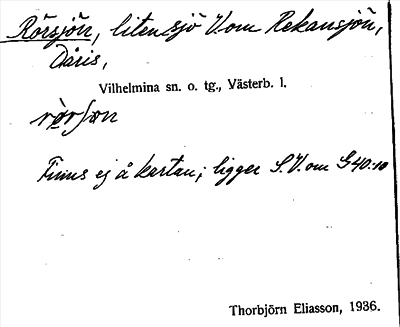 Rörsjön, liten sjö V. om Rekansjön,
Dåris,
Vilhelmina sn. o. tg., Västerb. l.
Finns ej å kartan; ligger S.V. om G40:10
Thorbjörn Eliasson, 1936.